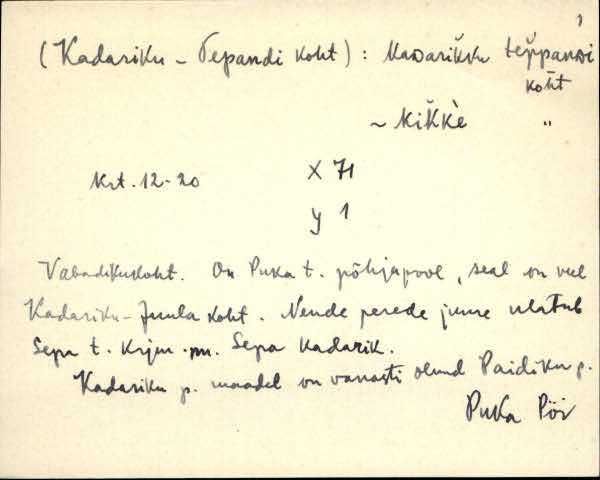 (Kadariku - Tepandi koht) : kaᴅarik̆ku tep̆panᴅi
koht
~ kik̆kè "
krt. 12-20 X 71
y 1
Vabadikukoht. On Puka t. põhjapool, seal on veel
Kadariku-Juula koht. Nende perede juure ulatub
Sepa t. krjm. nn. Sepa kadarik.
Kadariku p. maadel on vanasti olnud Paidiku p.
Puka Pöi